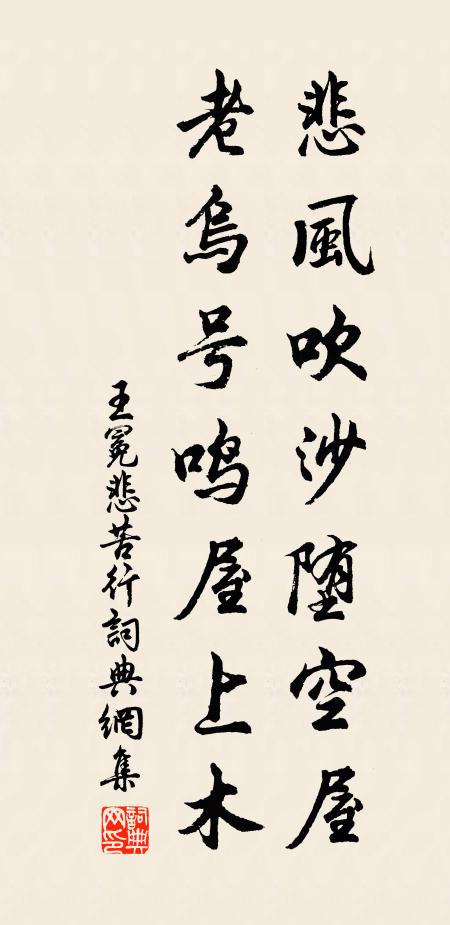 悲風吹沙堕空屋
老烏号鳴屋上木
王冕悲苦行詞典網集
詞典网印